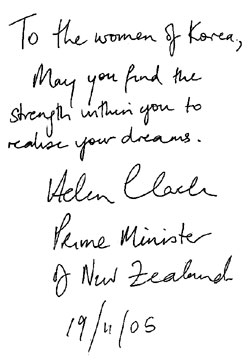 To the women of Korea,
May you find the
strength within you to
realise your dreams.
Helen Clark
Prime Minister
of New Zealand
19/11/05